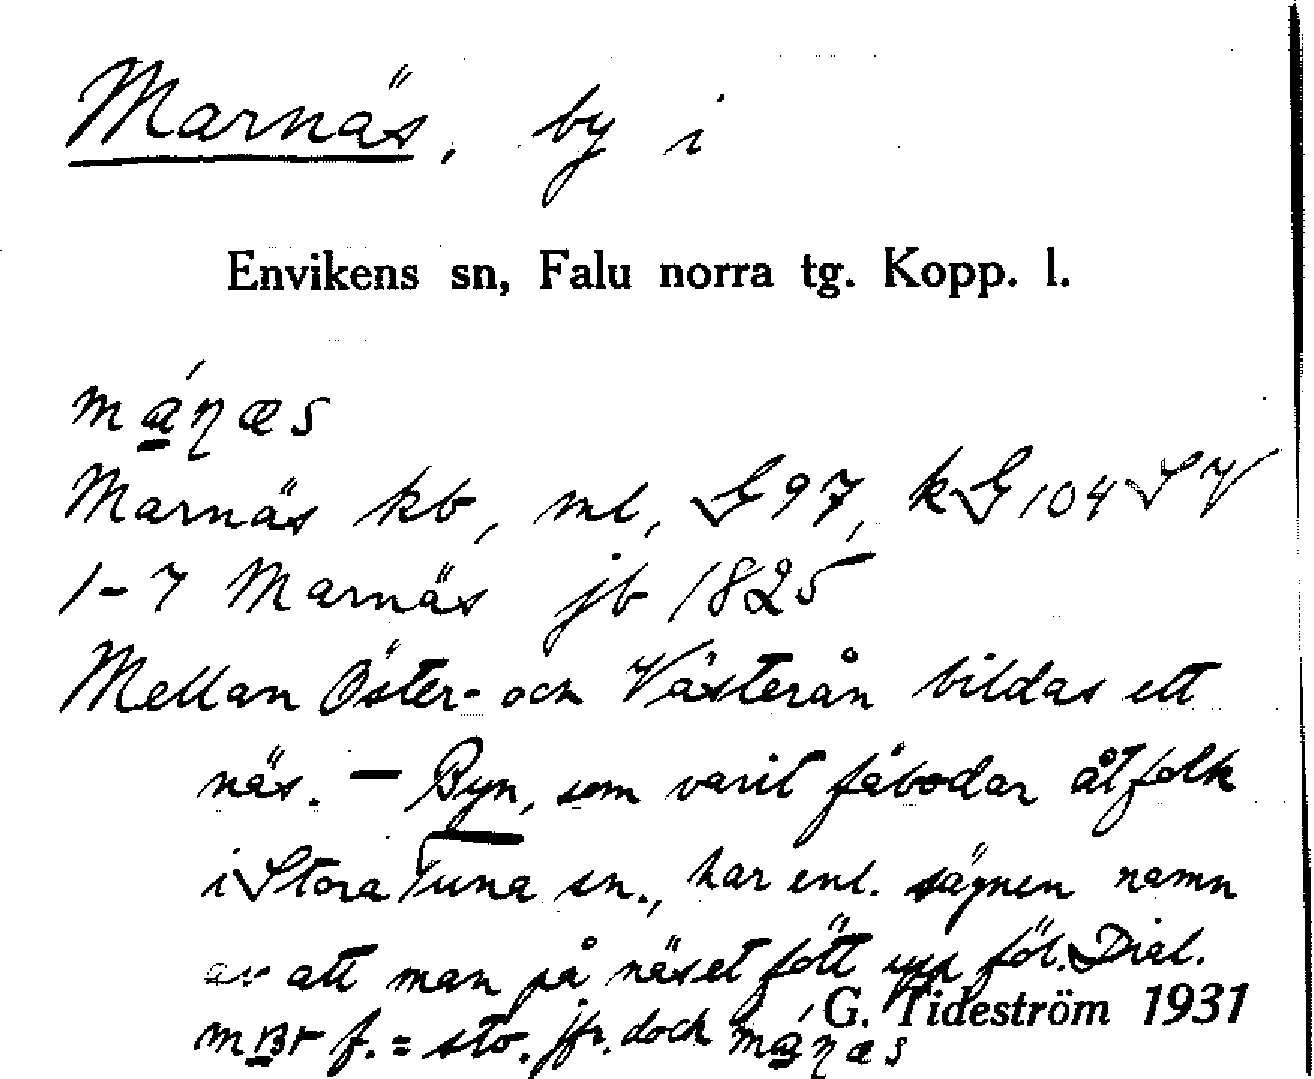 Marnäs, by i
Envikens sn, Falu norra tg. Kopp. l.
máṇæs
Marnäs kb, ml, G97, kG104 SV
1-7 Marnäs jb 1825
Mellan Öster- och Västerån bildas ett
näs. — Byn, som varit fäbodar åt folk
i Stora Tuna sn., har enl. sägnen namn
av att man på näset fött upp föl. Dial.
f. = sto. jfr. dock máṇæs
G. Tideström 1931